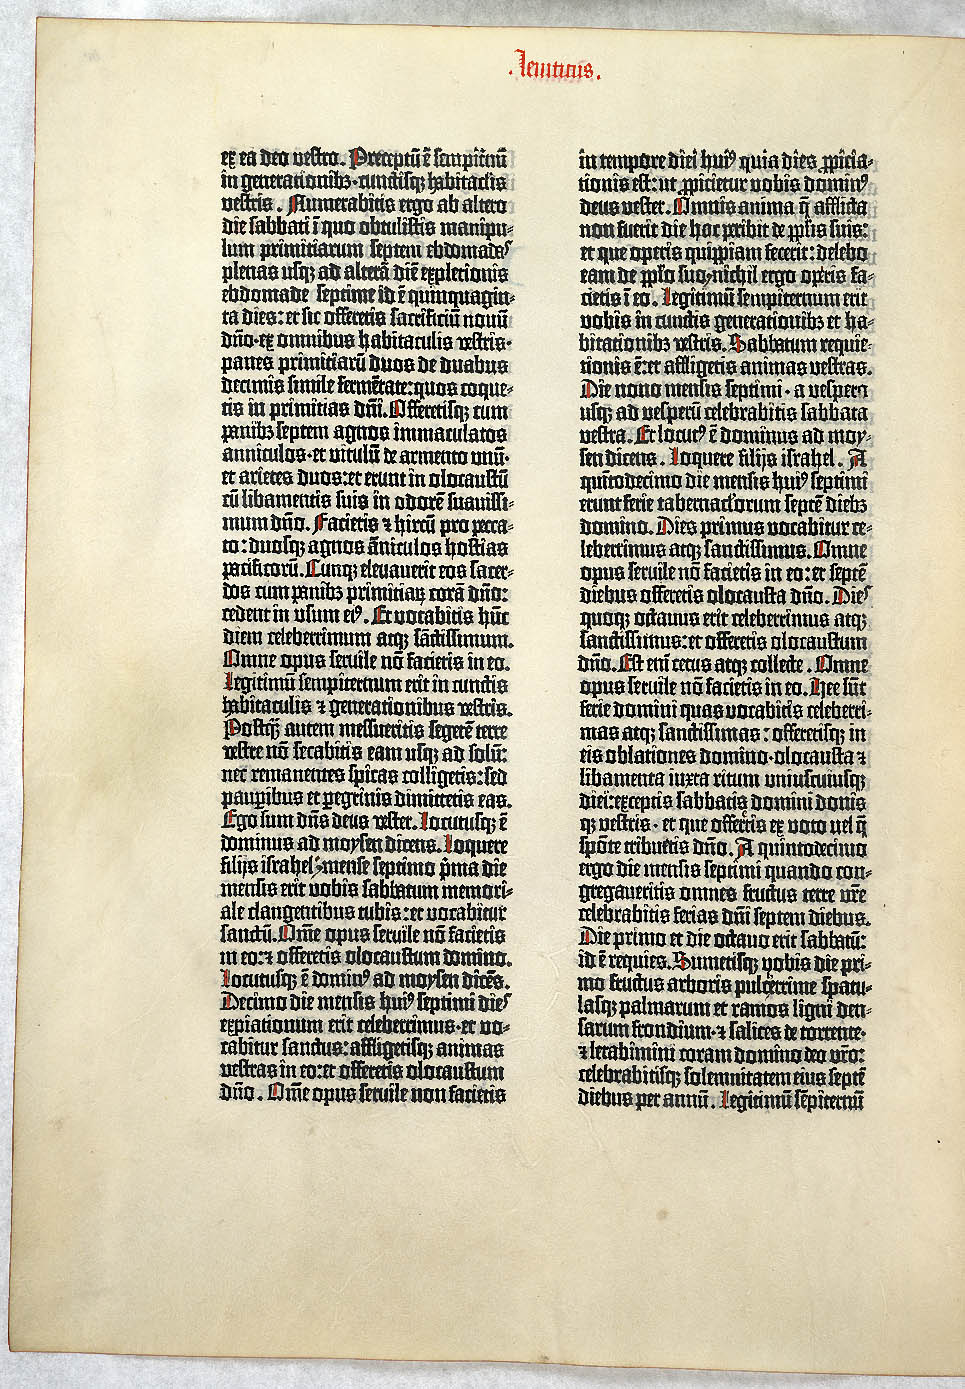 .Leuiticus.
ex ea deo vestro. Preceptū ē sempit̄nū
in generationibꝫ·cunctisqꝫ habitaclis
vestris. Numerabitis ergo ab altero
die sabbati ī quo obtulistis manipu-
lum primitiarum septem ebdomadas
plenas usqꝫ ad alterā diē expletionis
ebdomade septime id ē quinquagin-
ta dies: et sic offeretis sacrificiū nouū
dño·ex omnibus habitaculis vestris·
panes primitiarū duos de duabus
decimis simile fermētate: quos coque-
tis in primitias dñi. Offeretisqꝫ cum
panibꝫ septem agnos immaculatos
anniculos·et vitulū de armento vnū·
et arietes duos: et erunt in olocaustū
cū libamentis suis in odorē suauissi-
mum dño. Facietis ⁊ hircū pro pecca-
to: duosqꝫ agnos āniculos hostias
pacificorū. Cunqꝫ eleuauerit eos sacer-
dos cum panibꝫ primitiaꝝ corā dño:
cedent in vsum eiꝰ. Et vocabitis hūc
diem celeberrimum atqꝫ sāctissimum.
Omne opus seruile nō facietis in eo.
Legitimū sempiternum erit in cunctis
habitaculis ⁊ generationibus vestris.
Postqꝫ autem messueritis segetē terre
vestre nō secabitis eam usqꝫ ad solū:
nec remanentes spicas colligetis: sed
pauꝑibus et ꝑegrinis dimittetis eas.
Ego sum dñs deus vester. Locutusqꝫ ē
dominus ad moysen dicens. Loquere
filijs israhel: mense septimo p̄ma die
mensis erit vobis sabbatum memori-
ale clangentibus tubis: et vocabitur
sanctū. Om̄e opus seruile nō facietis
in eo: ⁊ offeretis olocaustum domino.
Locutusqꝫ ē dominꝰ ad moysen dicēs.
Decimo die mensis huiꝰ septimi dies
expiationum erit celeberrimus·et vo-
cabitur sanctus: affligetisqꝫ animas
vestras in eo: et offeretis olocaustum
dño. Om̄e opus seruile non facietis
in tempore diei huiꝰ quia dies ꝓpicia-
tionis est: ut ꝓpicietur vobis dominꝰ
deus vester. Omnis anima q̄ afflicta
non fuerit die hoc peribit de ꝓplis suis:
et que operis quippiam fecerit: delebo
eam de pplo suo, nichil ergo operis fa-
cietis ī eo. Legitimū sempiternum erit
vobis in cunctis generationibꝫ et ha-
bitationibꝫ vestris. Sabbatum requie-
tionis ē: et affligetis animas vestras.
Die nono mensis septimi·a vespera
usqꝫ ad vesperū celebrabitis sabbata
vestra. Et locutꝰ ē dominus ad moy-
sen dicens. Loquere filijs israhel. A
quītodecimo die mensis huiꝰ septimi
erunt ferie tabernaclorum septē diebꝫ
domino. Dies primus vocabitur ce-
leberrimus atqꝫ sanctissimus. Omne
opus seruile nō facietis in eo: et septē
diebus offeretis olocausta dño. Dies
quoqꝫ octauus erit celeberrimus atqꝫ
sanctissimus: et offeretis olocaustum
dño. Est eni cetus atqꝫ collecte. Omne
opus seruile nō facietis in eo. Hee sūt
ferie domini quas vocabitis celeberri-
mas atqꝫ sanctissimas: offeretisqꝫ in
eis oblationes domino·olocausta ⁊
libamenta iuxta ritum vniuscuiusqꝫ
diei: exceptis sabbatis domini donis
qꝫ vestris·et que offertis ex voto uel q̄
spōte tribuetis dño. A quintodecimo
ergo die mensis septimi quando con-
gregaueritis omnes fructus terre vr̄e
celebrabitis ferias dñi septem diebus.
Die primo et die octauo erit sabbatū:
id ē requies. Sumetisqꝫ vobis die pri-
mo fructus arboris pulcerrime spatu-
lasqꝫ palmarum et ramos ligni den-
sarum frondium·⁊ salices de torrente·
⁊ letabimini coram domino deo vr̄o:
celebrabitisqꝫ solemnitatem eius septē
diebus per annū. Legitimū sēpiternū